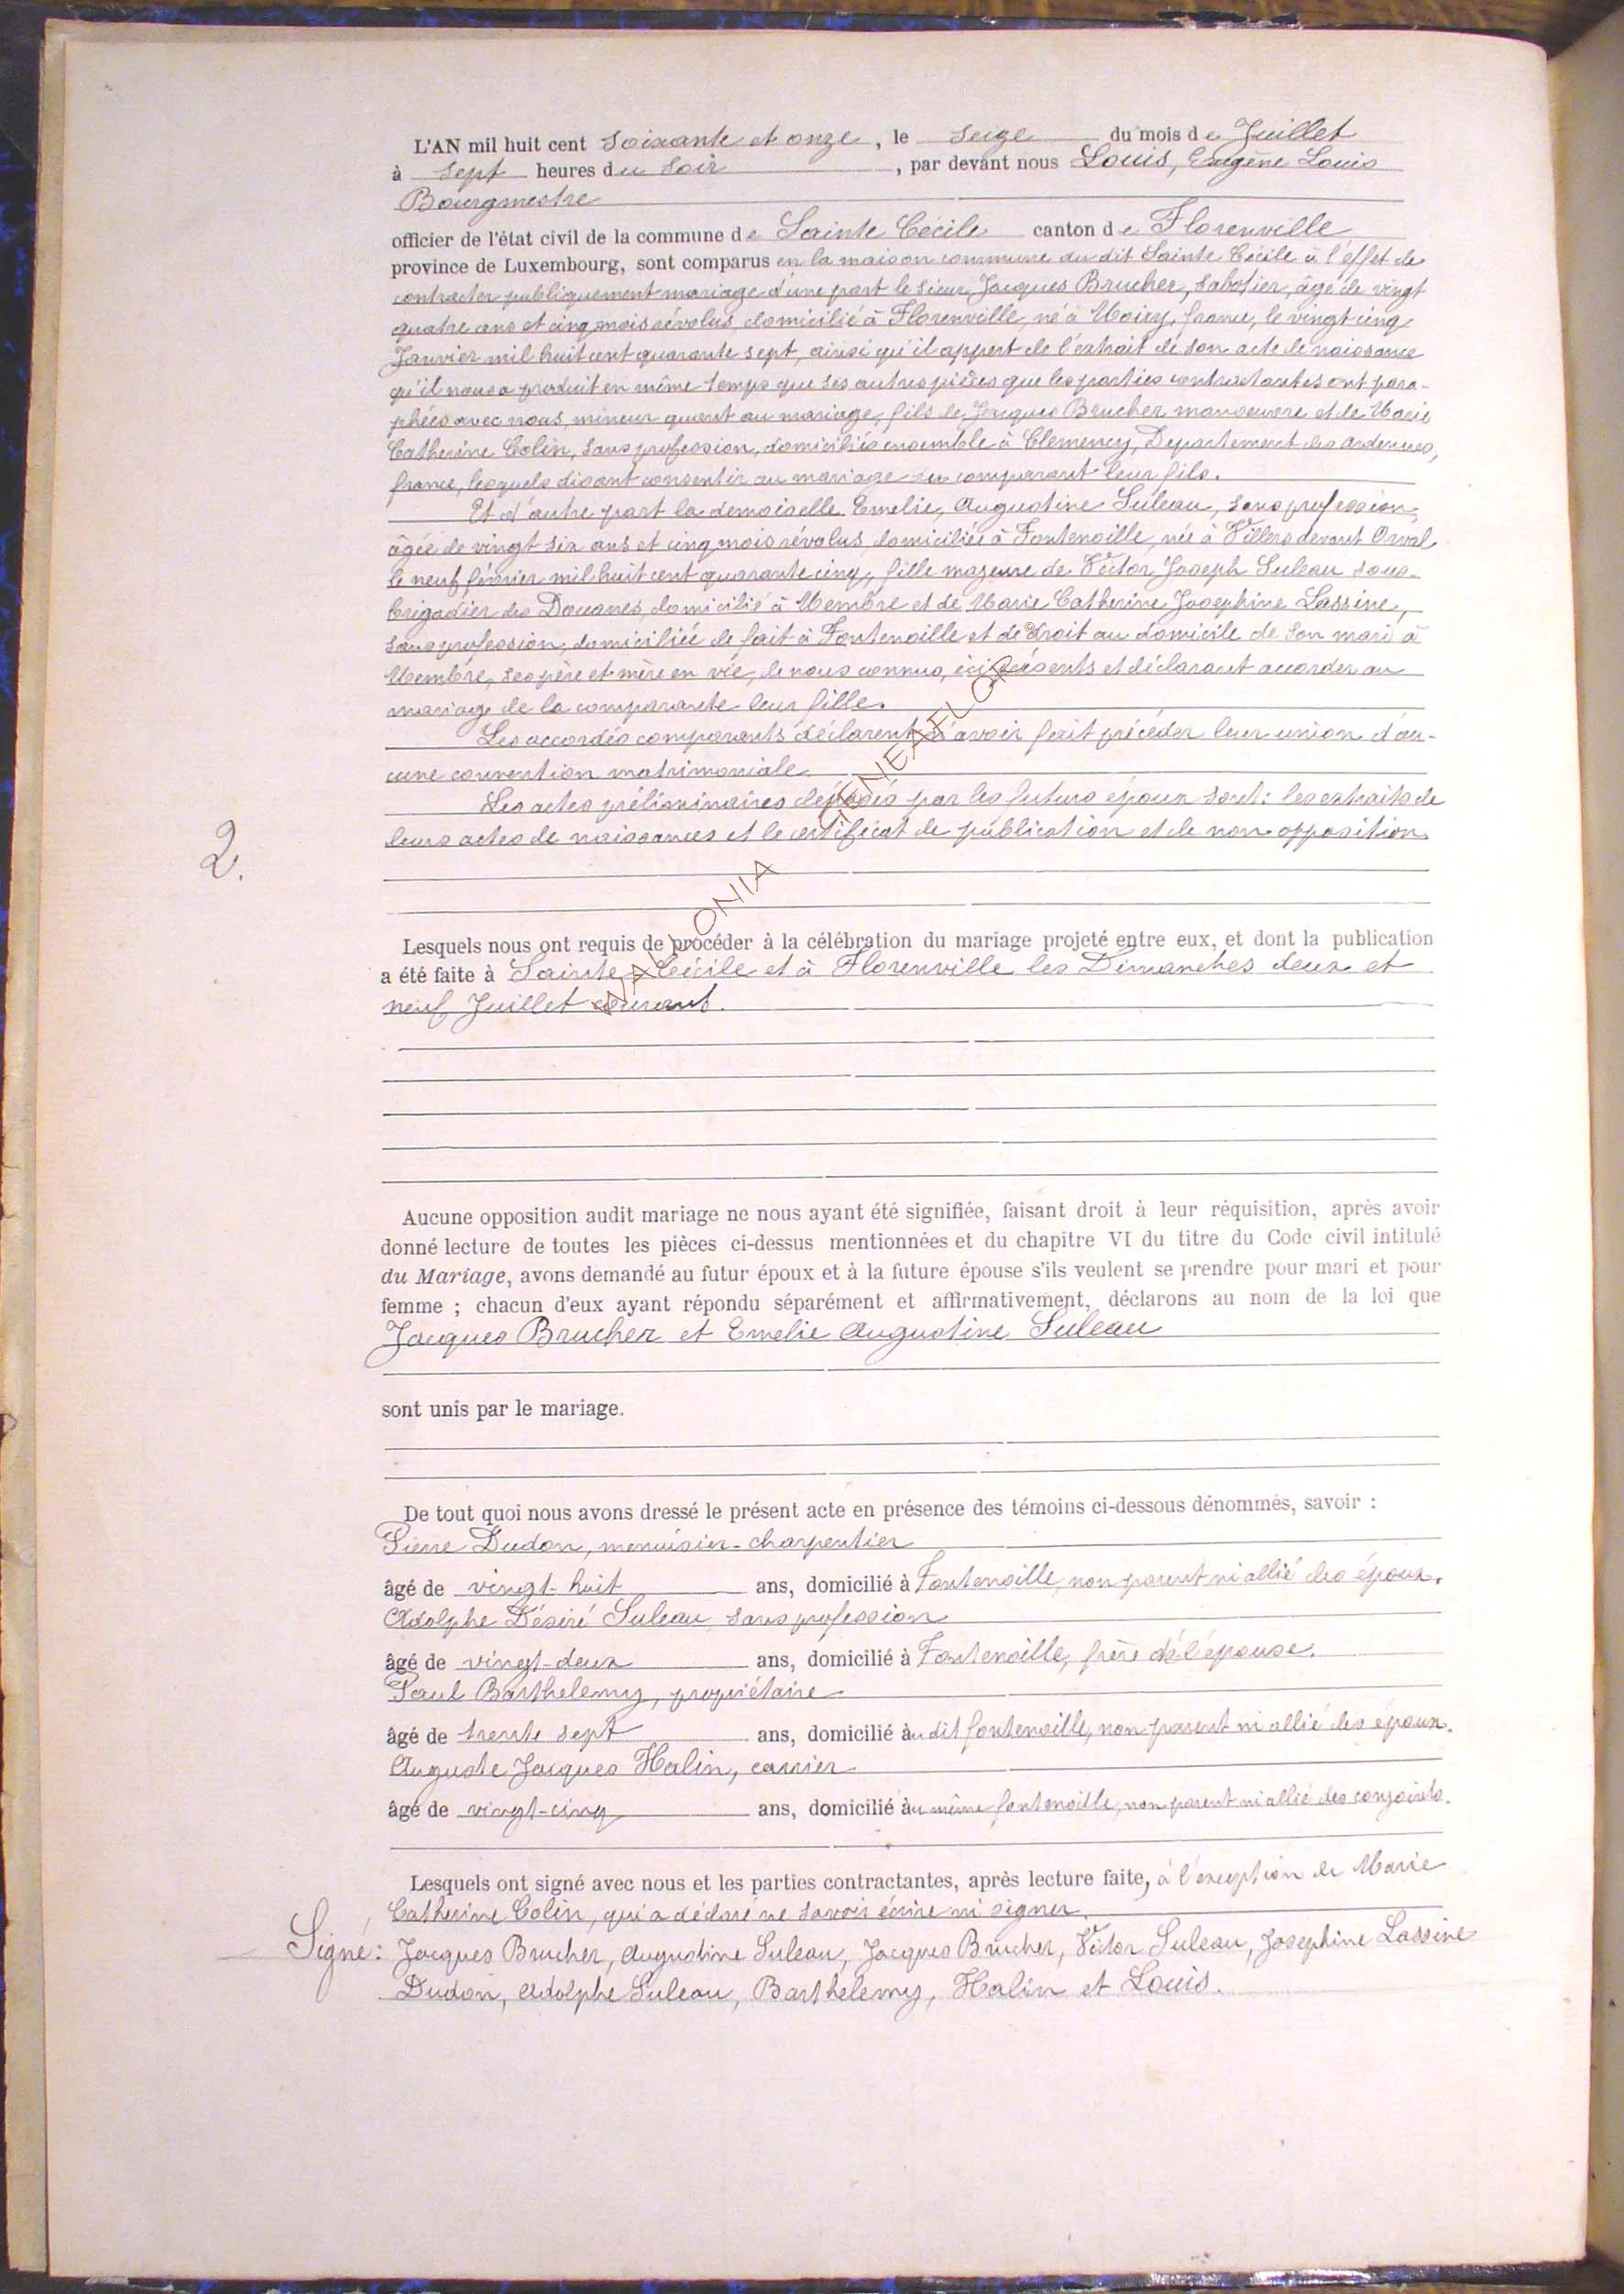 L'AN mil huit cent soixante et onze, le seize du mois de Juillet
à sept heures du soir, par devant nous Louis, Eugène Louis
Bourgmestre
officier de l'état civil de la commune de Sainte Cécile canton de Florenville
province de Luxembourg, sont comparus en la maison commune du dit Sainte Cécile à l'effet de
contracter publiquement mariage d'une part le sieur Jacques Brucher, sabotier, âgé de vingt
quatre ans et cinq mois révolus, domicilié à Florenville, né à Moiry, france, le vingt cinq
Janvier mil huit cent quarante sept, ainsi qu'il appert de l'extrait de son acte de naissance
qu'il nous a produit en même temps que ses autres pièces que les parties contractantes ont para-
phées avec nous, mineur quant au mariage, fils de Jacques Brucher manoeuvre et de Marie
Catherine Colin, sans profession, domiciliés ensemble à Clemency, Departement des ardennes,
france, lesquels disant consentir au mariage du comparant leur fils.
Et d'autre part la demoiselle Emelie, Augustine Suleau, sans profession,
âgée de vingt six ans et cinq mois révolus, domiciliée à Fontenoille, née à Villers devant Orval
le neuf février mil huit cent quarante cinq, fille majeure de Victor Joseph Suleau sous-
brigadier des Douanes, domicilié à Membre et de Marie Catherine Josephine Lassine,
sans profession, domiciliée de fait à Fontenoille et de droit au domicile de son mari à
Membre, ses père et mère en vie, de nous connus, ici présents et déclarant accorder au
mariage de la comparante leur fille.
Les accordés comparants déclarent n'avoir fait précéder leur union d'au-
cune convention matrimoniale.
Les actes préliminaires déposés par les futurs époux sont: les extraits de
leurs actes de naissances et le certificat de publication et de non opposition
2.
Lesquels nous ont requis de procéder à la célébration du mariage projeté entre eux, et dont la publication
a été faite à Sainte Cécile et à Florenville les Dimanches deux et
neuf Juillet courant.
WALLONIA GENEAFLOR
Aucune opposition audit mariage ne nous ayant été signifiée, faisant droit à leur réquisition, après avoir
donné lecture de toutes les pièces ci-dessus mentionnées et du chapitre VI du titre du Code civil intitulé
du Mariage, avons demandé au futur époux et à la future épouse s'ils veulent se prendre pour mari et pour
femme ; chacun d'eux ayant répondu séparément et affirmativement, déclarons au nom de la loi que
Jacques Brucher et Emelie Augustine Suleau
sont unis par le mariage.
De tout quoi nous avons dressé le présent acte en présence des témoins ci-dessous dénommés, savoir :
Pierre Dudon, menuisier-charpentier
âgé de vingt-huit ans, domicilié à Fontenoille, non parent ni allié des époux.
Adolphe Désiré Suleau, sans profession
âgé de vingt-deux ans, domicilié à Fontenoille, frère de l'épouse.
Paul Barthelemy, propriétaire
âgé de trente sept ans, domicilié àu dit fontenoille, non parent ni allié des époux.
Auguste Jacques Halin, carrier
âgé de vingt-cinq ans, domicilié àu même fontenoille, non parent ni allié des conjoints.
Lesquels ont signé avec nous et les parties contractantes, après lecture faite, à l'exception de Marie
Catherine Colin, qui a déclaré ne savoir écrire ni signer.
Signé: Jacques Brucher, Augustine Suleau, Jacques Brucher, Victor Suleau, Josephine Lassine
Dudon, Adolphe Suleau, Barthelemy, Halin et Louis.